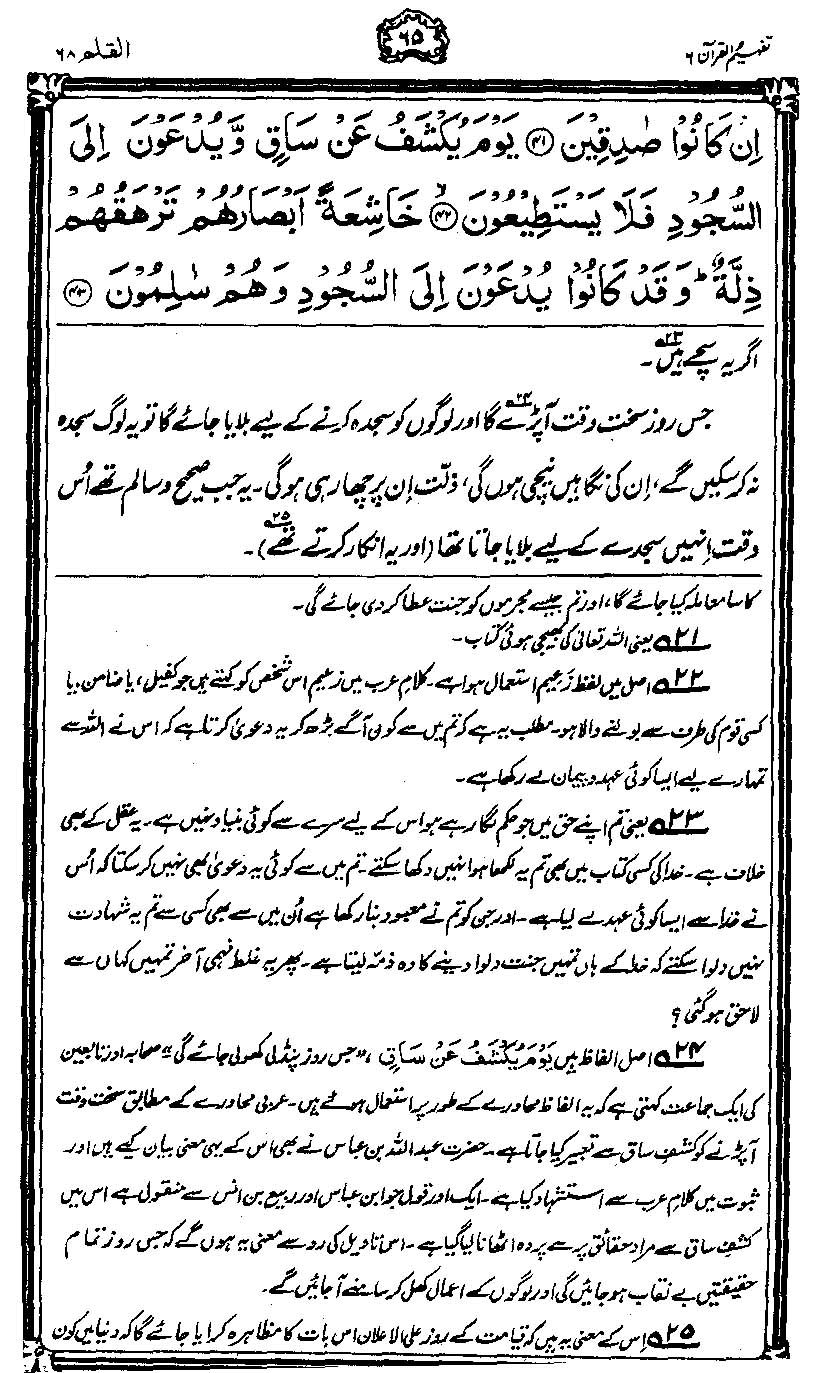 تفہیم القرآن ۶
۶۵
القلم ۶۸
اِنْ كَانُوْا صٰدِقِيْنَ ﴿۴۱﴾ يَوْمَ يُكْشَفُ عَنْ سَاقٍ وَّ يُدْعَوْنَ اِلَى
السُّجُوْدِ فَلَا يَسْتَطِيْعُوْنَ ﴿۴۲﴾ۙ خَاشِعَةً اَبْصَارُهُمْ تَرْهَقُهُمْ
ذِلَّةٌ ؕ وَ قَدْ كَانُوْا يُدْعَوْنَ اِلَى السُّجُوْدِ وَ هُمْ سٰلِمُوْنَ ﴿۴۳﴾
اگر یہ سچے ہیں۲۳۔
جس روز سخت وقت آ پڑے گا۲۴ اور لوگوں کو سجدہ کرنے کے لیے بلایا جائے گا تو یہ لوگ سجدہ
نہ کر سکیں گے، اِن کی نگاہیں نیچی ہوں گی، ذلّت اِن پر چھا رہی ہوگی۔ یہ جب صحیح و سالم تھے اُس
وقت اِنہیں سجدے کے لیے بلایا جاتا تھا (اور یہ انکار کرتے تھے)۲۵۔
کا سا معاملہ کیا جائے گا، اور تم جیسے مجرموں کو جنت عطا کر دی جائے گی۔
۲۱ یعنی اللہ تعالیٰ کی بھیجی ہوئی کتاب۔
۲۲ اصل میں لفظ زَعِیم استعمال ہوا ہے۔ کلامِ عرب میں زعیم اس شخص کو کہتے ہیں جو کفیل، یا ضامن، یا
کسی قوم کی طرف سے بولنے والا ہو۔ مطلب یہ ہے کہ تم میں سے کون آگے بڑھ کر یہ دعویٰ کرتا ہے کہ اس نے اللہ سے
تمہارے لیے ایسا کوئی عہد و پیمان لے رکھا ہے۔
۲۳ یعنی تم اپنے حق میں جو حکم لگا رہے ہو اس کے لیے سرے سے کوئی بنیاد نہیں ہے۔ یہ عقل کے بھی
خلاف ہے۔ خدا کی کسی کتاب میں بھی تم یہ لکھا ہوا نہیں دکھا سکتے۔ تم میں سے کوئی یہ دعویٰ بھی نہیں کر سکتا کہ اُس
نے خدا سے ایسا کوئی عہد لے لیا ہے۔ اور جن کو تم نے معبود بنا رکھا ہے اُن میں سے بھی کسی سے تم یہ شہادت
نہیں دلوا سکتے کہ خدا کے ہاں تمہیں جنت دلوا دینے کا وہ ذمّہ لیتا ہے۔ پھر یہ غلط فہمی آخر تمہیں کہاں سے
لاحق ہو گئی؟
۲۴ اصل الفاظ ہیں یَوْمَ یُکْشَفُ عَنْ سَاقٍ، ”جس روز پنڈلی کھولی جائے گی“ صحابہ اور تابعین
کی ایک جماعت کہتی ہے کہ یہ الفاظ محاورے کے طور پر استعمال ہوئے ہیں۔ عربی محاورے کے مطابق سخت وقت
آ پڑنے کو کشفِ ساق سے تعبیر کیا جاتا ہے۔ حضرت عبداللہ بن عباس نے بھی اس کے یہی معنی بیان کیے ہیں اور
ثبوت میں کلامِ عرب سے استشہاد کیا ہے۔ ایک اور قول جو ابن عباس اور ربیع بن انس سے منقول ہے اس میں
کشفِ ساق سے مراد حقائق پر سے پردہ اٹھانا لیا گیا ہے۔ اس تاویل کی رو سے معنی یہ ہوں گے کہ جس روز تمام
حقیقتیں بے نقاب ہو جائیں گی اور لوگوں کے اعمال کھل کر سامنے آ جائیں گے۔
۲۵ اِس کے معنی یہ ہیں کہ قیامت کے روز علی الاعلان اس بات کا مظاہرہ کرایا جائے گا کہ دنیا میں کون